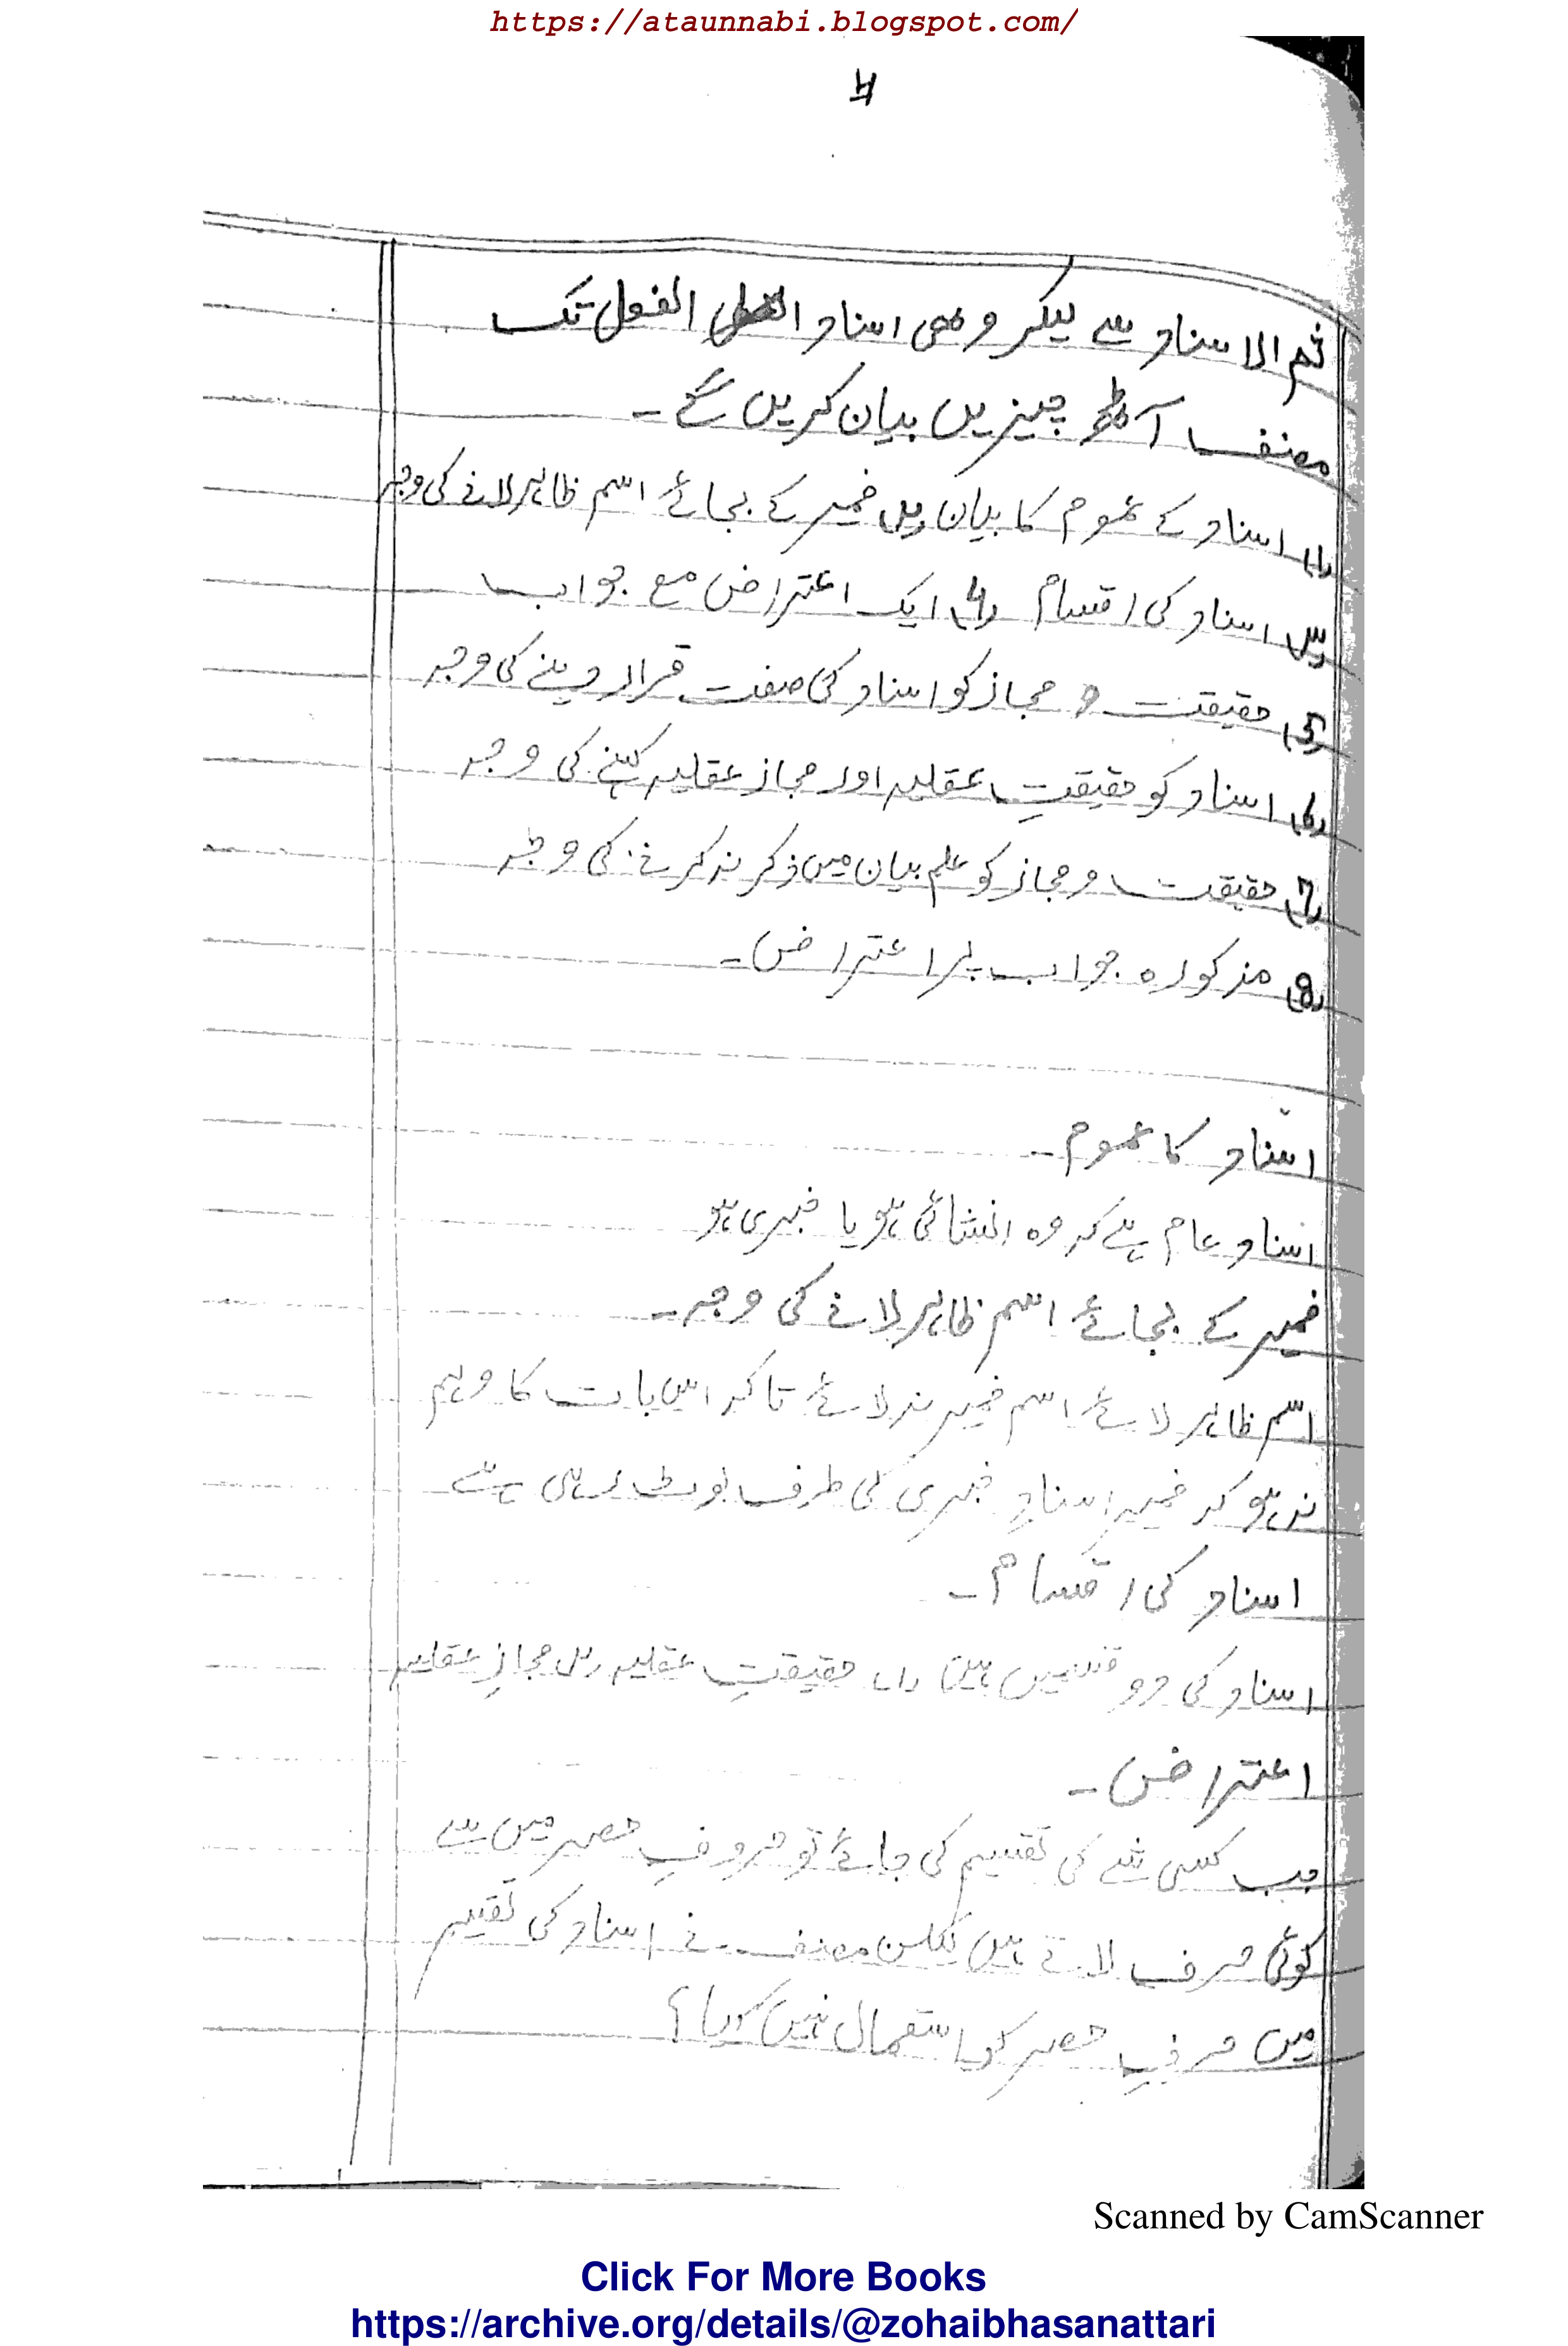 https://ataunnabi.blogspot.com/
4
ثم الاسناد سے لیکر وھی اسناد الفعل تک
مصنف آٹھ چیزیں بیان کریں گے۔
(1) اسناد کے عموم کا بیان (2) ضمیر کے بجائے اسم ظاہر لانے کی وجہ
(3) اسناد کی اقسام (4) ایک اعتراض مع جواب
(5) حقیقت و مجاز کو اسناد کی صفت قرار دینے کی وجہ
(6) اسناد کو حقیقتِ عقلیہ اور مجاز عقلیہ کہنے کی وجہ
(7) حقیقت و مجاز کو علم بیان میں ذکر نہ کرنے کی وجہ
(8) مذکورہ جواب پر اعتراض۔
اسناد کا عموم۔
اسناد عام ہے کہ وہ انشائی ہو یا خبری ہو
ضمیر کے بجائے اسم ظاہر لانے کی وجہ۔
اسم ظاہر لائے اسم ضمیر نہ لائے تاکہ اس بات کا وہم
نہ ہو کہ ضمیر اسنادِ خبری کی طرف لوٹ رہی ہے
اسناد کی اقسام۔
اسناد کی دو قسمیں ہیں (1) حقیقتِ عقلیہ (2) مجازِ عقلیہ
اعتراض۔
جب کسی شے کی تقسیم کی جائے تو حروفِ حصر میں سے
کوئی حرف لاتے ہیں لیکن مصنف نے اسناد کی تقسیم
میں حرفِ حصر کو استعمال نہیں کیا؟
Scanned by CamScanner
Click For More Books
https://archive.org/details/@zohaibhasanattari